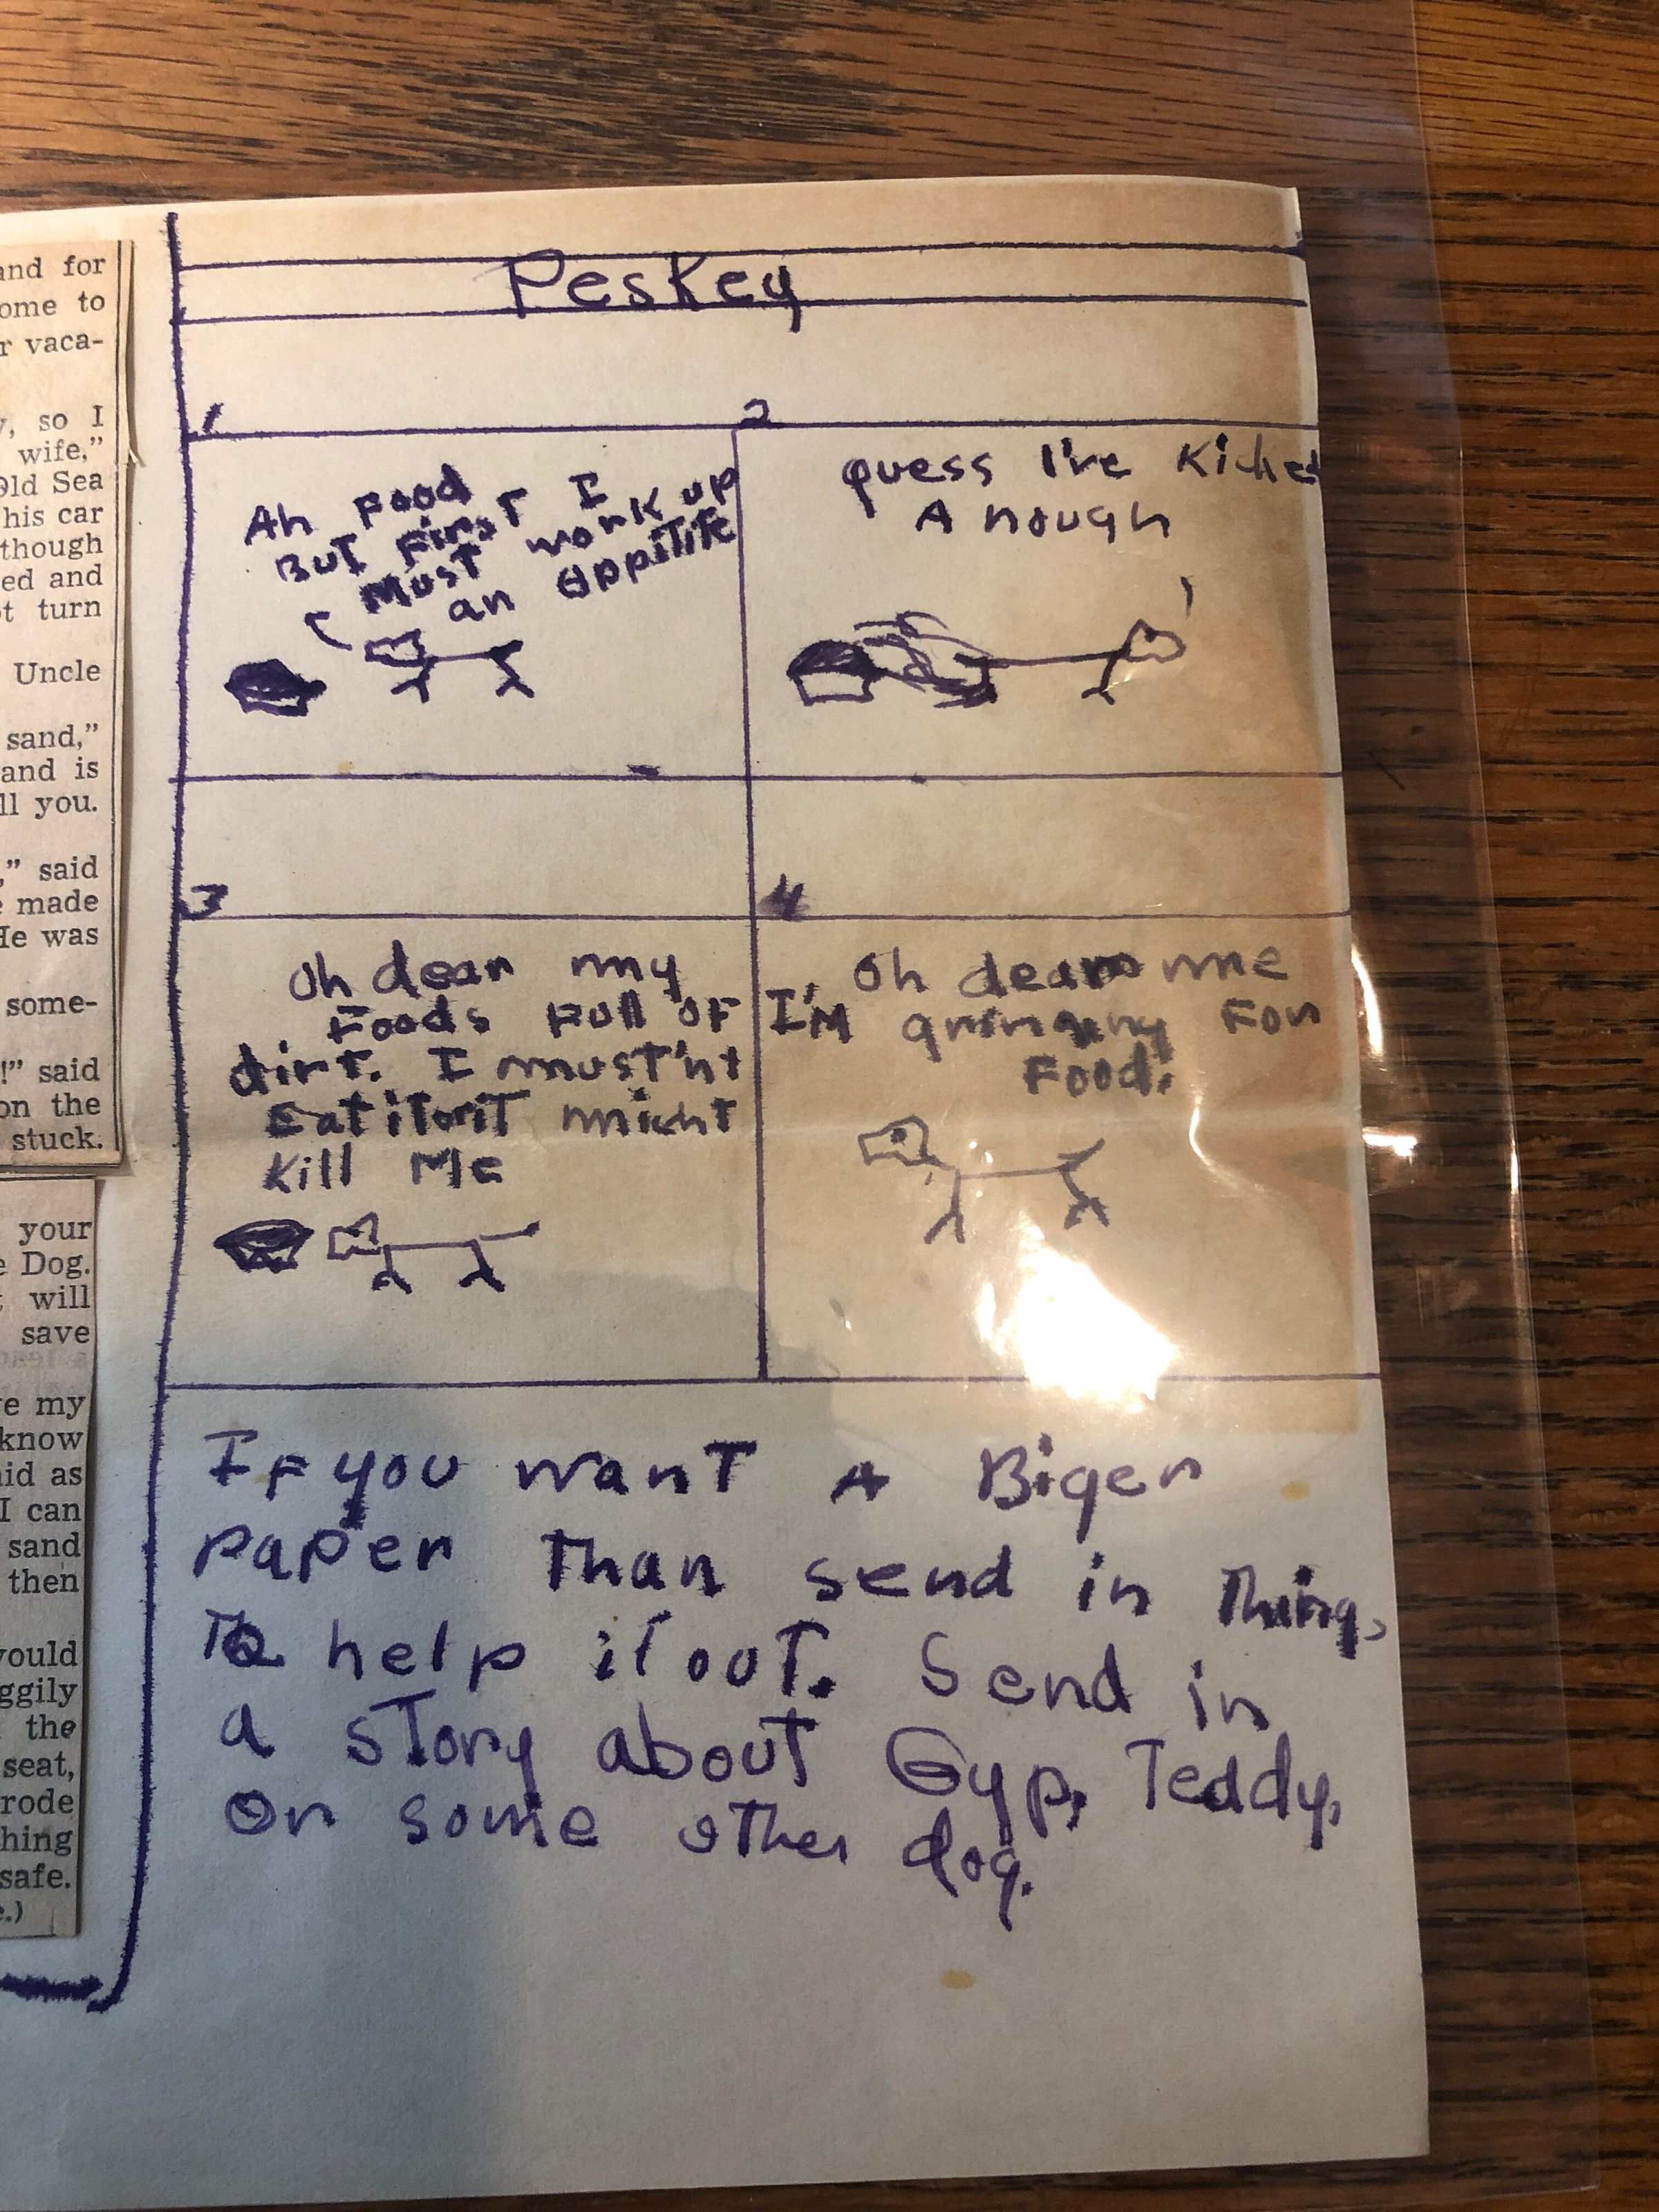 and for
ome to
r vaca-
y, so I
wife,"
Old Sea
his car
though
ed and
ot turn
Uncle
sand,"
and is
ll you.
," said
e made
He was
some-
!" said
on the
stuck.
your
e Dog.
t will
save
ve my
know
aid as
I can
sand
then
would
ggily
the
seat,
rode
thing
safe.
e.)
Peskey
1
Ah Food
But First I
Must work up
an appitite
2
guess I've Kicked
A nough
3
Oh dear my
Foods Full of
dirt. I must'nt
Eat it or it might
Kill Me
4
Oh dear me
I'M for
Food.
If you want A Biger
paper Than send in Things
To help it out. Send in
a story about Gyp, Teddy,
or some other dog.